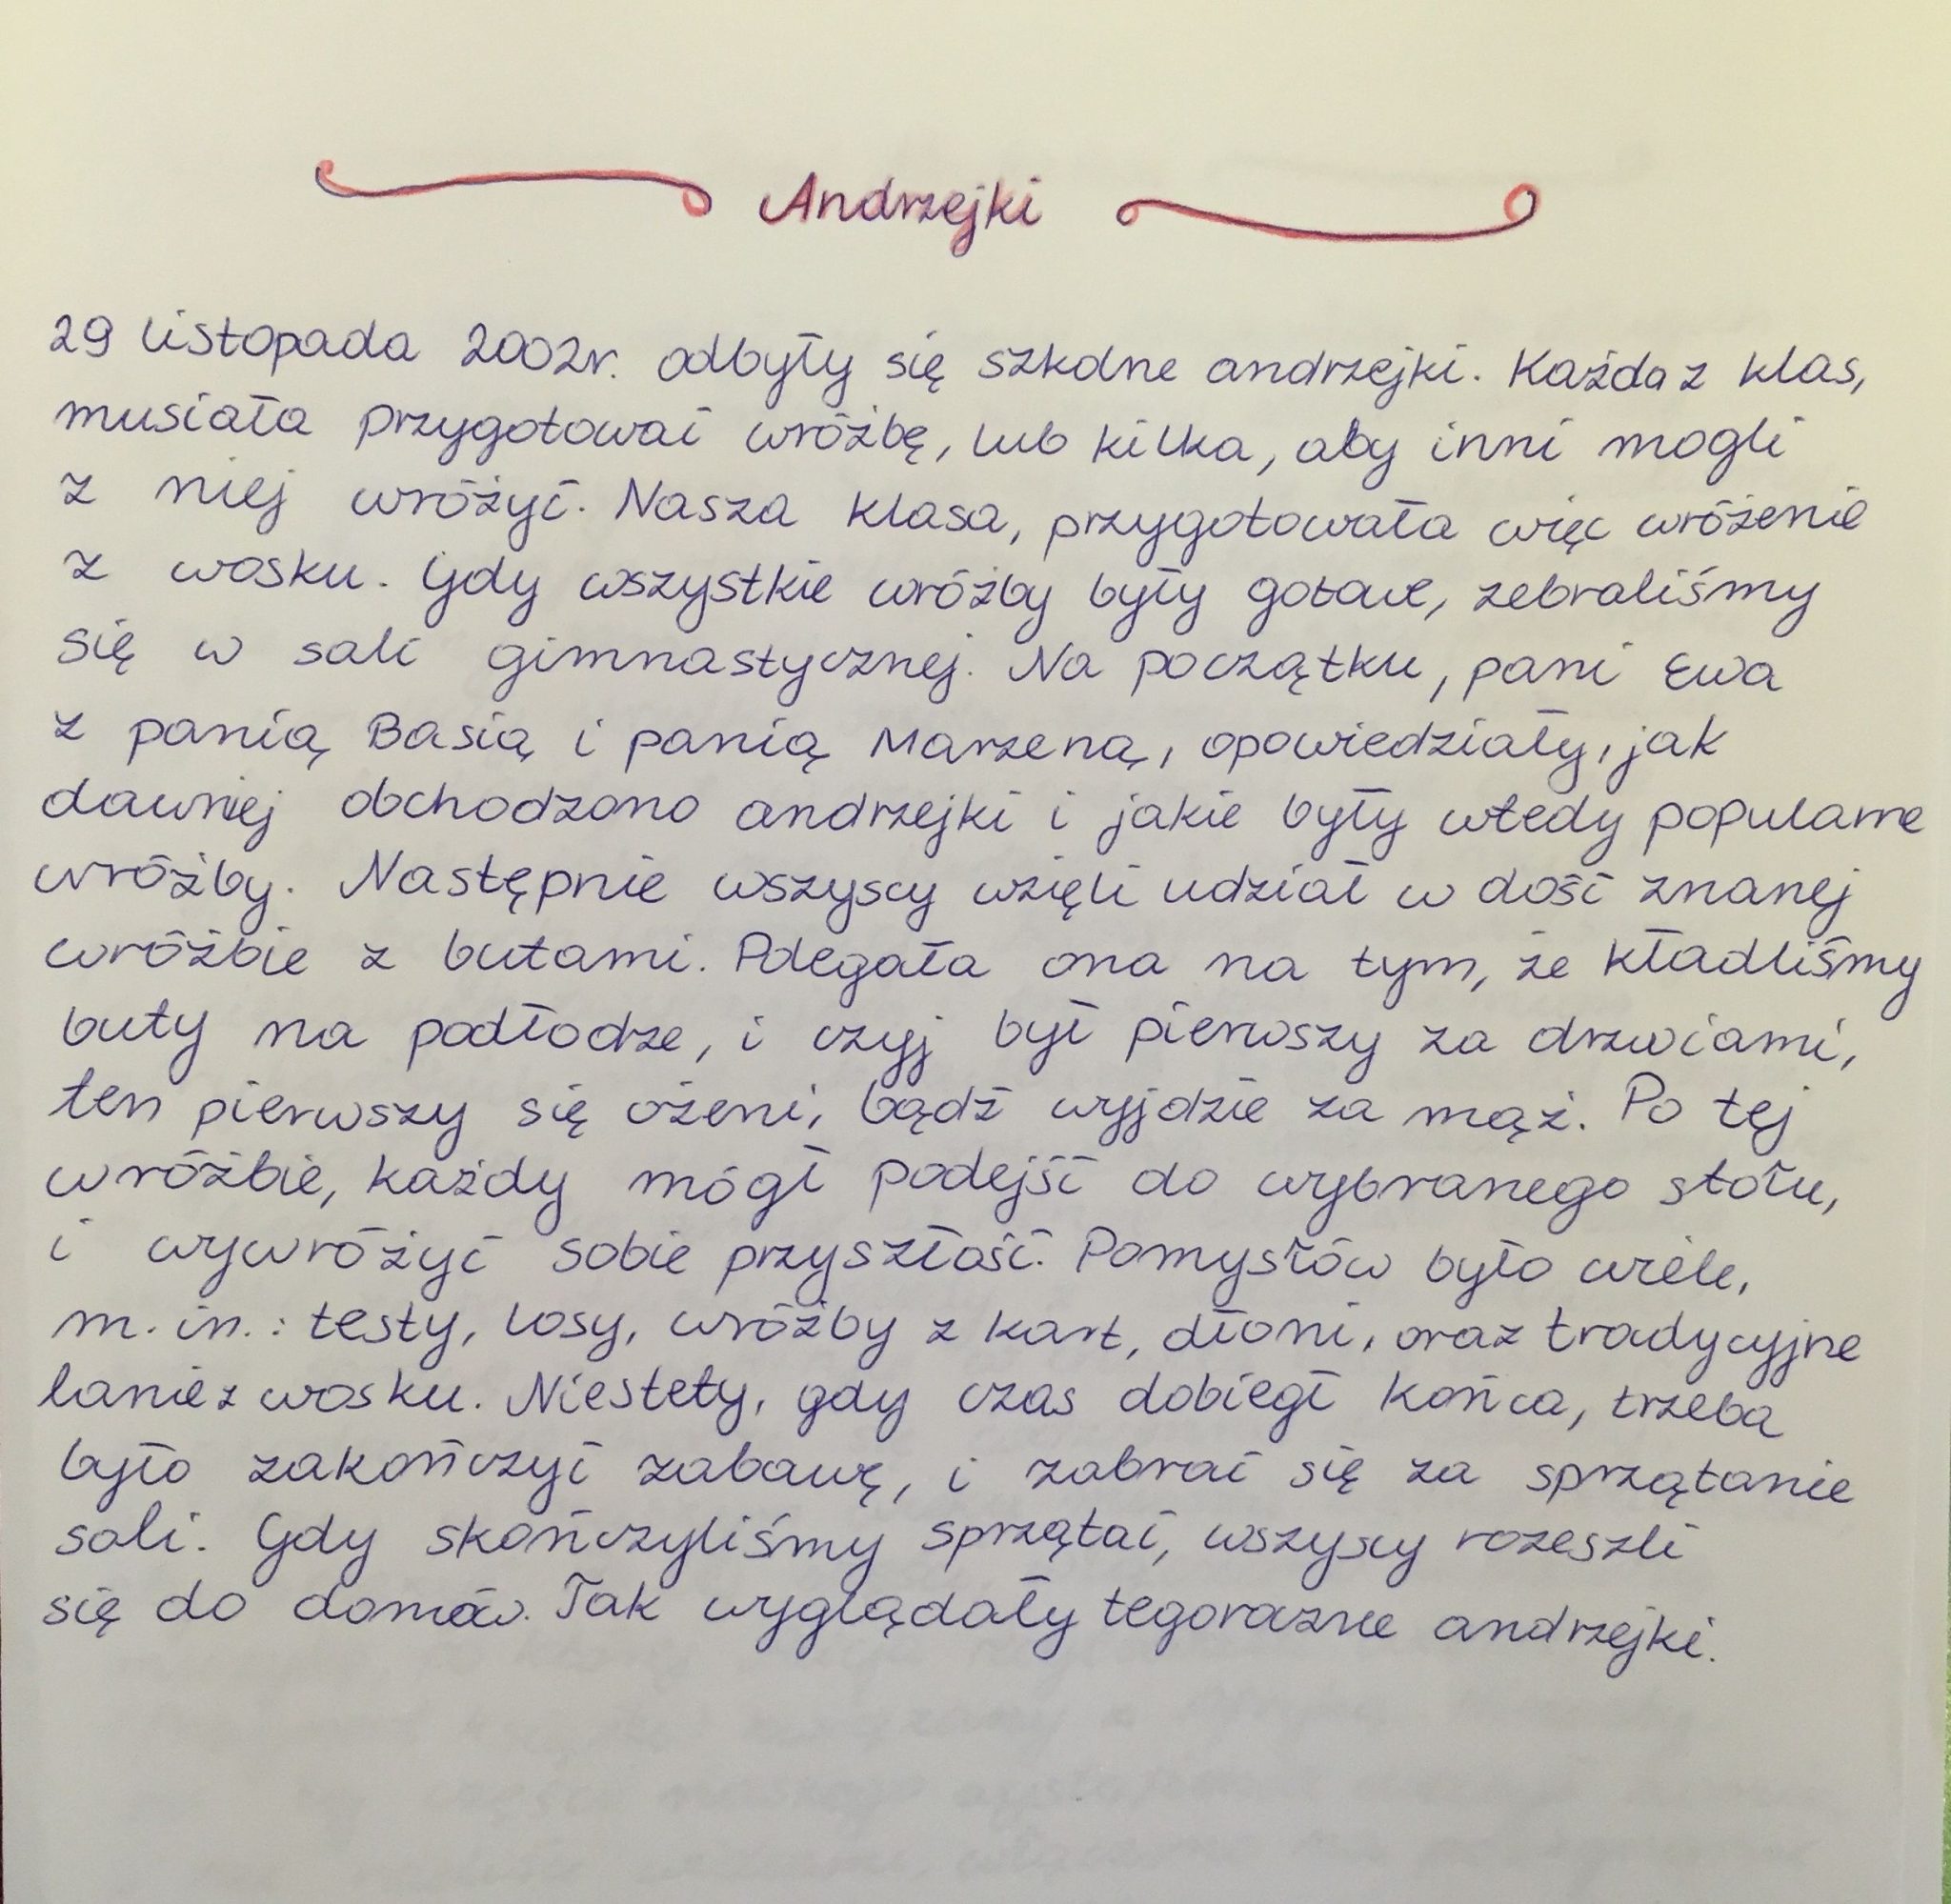 Andrzejki
29 listopada 2002r. odbyły się szkolne andrzejki. Każda z klas,
musiała przygotować wróżbę, lub kilka, aby inni mogli
z niej wróżyć. Nasza klasa, przygotowała więc wróżenie
z wosku. Gdy wszystkie wróżby były gotowe, zebraliśmy
się w sali gimnastycznej. Na początku, pani Ewa
z panią Basią i panią Marzeną, opowiedziały, jak
dawniej obchodzono andrzejki i jakie były wtedy popularne
wróżby. Następnie wszyscy wzięli udział w dość znanej
wróżbie z butami. Polegała ona na tym, że kładliśmy
buty na podłodze, i czyj był pierwszy za drzwiami,
ten pierwszy się ożeni, bądź wyjdzie za mąż. Po tej
wróżbie, każdy mógł podejść do wybranego stołu,
i wywróżyć sobie przyszłość. Pomysłów było wiele,
m. in.: testy, losy, wróżby z kart, dłoni, oraz tradycyjne
lanie z wosku. Niestety, gdy czas dobiegł końca, trzeba
było zakończyć zabawę, i zabrać się za sprzątanie
sali. Gdy skończyliśmy sprzątać, wszyscy rozeszli
się do domów. Tak wyglądały tegoroczne andrzejki.